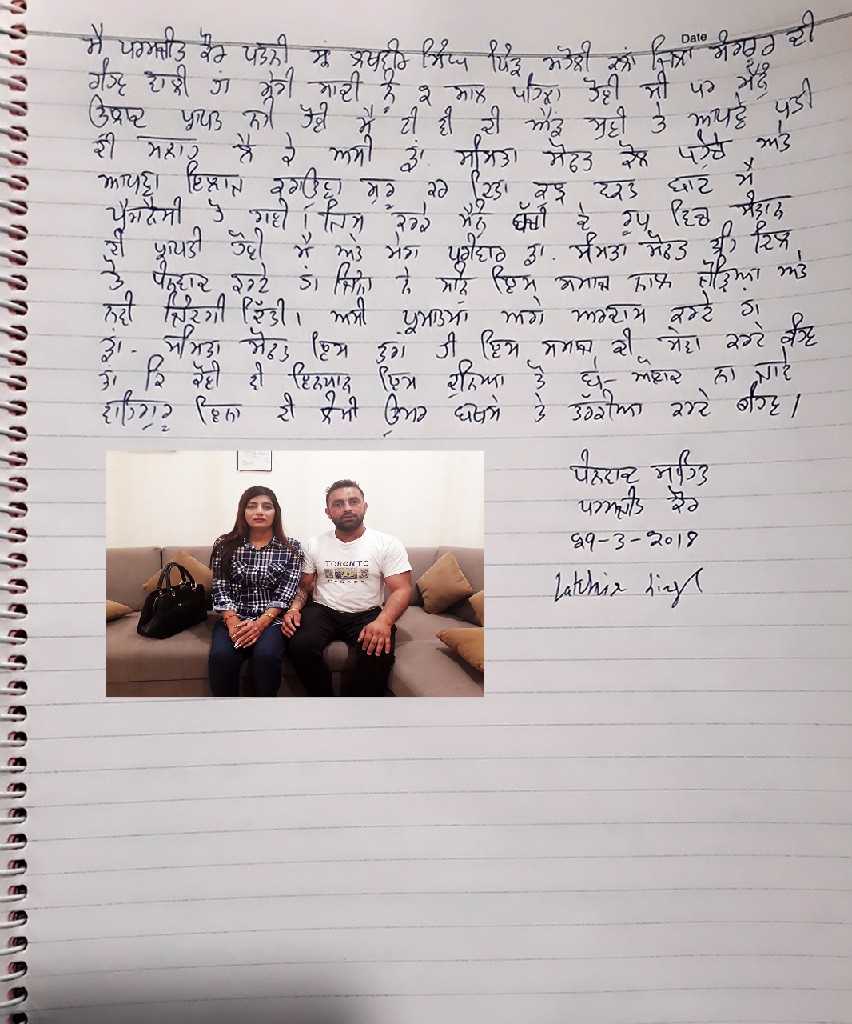 Date
ਮੈ ਪਰਮਜੀਤ ਕੌਰ ਪਤਨੀ ਸ੍ਰ ਲਖਵੀਰ ਸਿੰਘ ਪਿੰਡ ਮਹੋਲੀ ਕਲਾਂ ਜਿਲਾ ਸੰਗਰੂਰ ਦੀ
ਰਹਿਣ ਵਾਲੀ ਹਾਂ ਮੇਰੀ ਸ਼ਾਦੀ ਨੂੰ ੨ ਸਾਲ ਪਹਿਲਾ ਹੋਈ ਸੀ ਪਰ ਮੈਨੂੰ
ਉਲਾਦ ਪ੍ਰਾਪਤ ਨਹੀ ਹੋਈ ਮੈਂ ਟੀ ਵੀ ਦੀ ਐਡ ਸੁਣੀ ਤੇ ਆਪਣੇ ਪਤੀ
ਦੀ ਸਲਾਹ ਲੈ ਕੇ ਅਸੀ ਡਾ. ਸੀਮਤਾ ਕੋਲ ਪਹੁੰਚੇ ਅਤੇ
ਆਪਣਾ ਇਲਾਜ ਕਰਾਉਣਾ ਸ਼ੁਰੂ ਕਰ ਦਿਤਾ ਕੁਝ ਵਕਤ ਬਾਦ ਮੈ
ਪ੍ਰੈਗਨੈਂਸੀ ਹੋ ਗਈ। ਜਿਸ ਕਰਕੇ ਮੈਨੂੰ ਬੱਚੀ ਦੇ ਰੂਪ ਵਿਚ ਸੰਤਾਨ
ਦੀ ਪ੍ਰਾਪਤੀ ਹੋਈ ਮੈ ਅਤੇ ਮੇਰਾ ਪਰੀਵਾਰ ਡਾ. ਸੀਮਤਾ ਜੀ ਦਿਲ
ਤੋ ਧੰਨਵਾਦ ਕਰਦੇ ਹਾਂ ਜਿਨਾ ਨੇ ਸਾਨੂੰ ਇਸ ਸਮਾਜ ਨਾਲ ਜੋੜਿਆ ਅਤੇ
ਨਵੀ ਜਿੰਦਗੀ ਦਿੱਤੀ। ਅਸੀ ਪ੍ਰਮਾਤਮਾ ਅਗੇ ਅਰਦਾਸ ਕਰਦੇ ਹਾਂ
ਡਾ. ਸੀਮਤਾ ਇਸ ਤਰਾ ਹੀ ਇਸ ਸਮਾਜ ਦੀ ਸੇਵਾ ਕਰਦੇ ਰਹਿਣ
ਤਾ ਕਿ ਕੋਈ ਵੀ ਇਨਸਾਨ ਇਸ ਦੁਨਿਆ ਤੋ ਬੇ-ਔਲਾਦ ਨਾ ਜਾਵੇ
ਵਾਹਿਗੁਰੂ ਇਨਾ ਦੀ ਲੰਮੀ ਉਮਰ ਬਖਸ਼ੇ ਤੇ ਤਰੱਕੀਆ ਕਰਦੇ ਰਹਿਣ।
ਧੰਨਵਾਦ ਸਹਿਤ
ਪਰਮਜੀਤ ਕੌਰ
੨੧-੩-੨੦੧੭
Lakhvir Singh
TORONTO